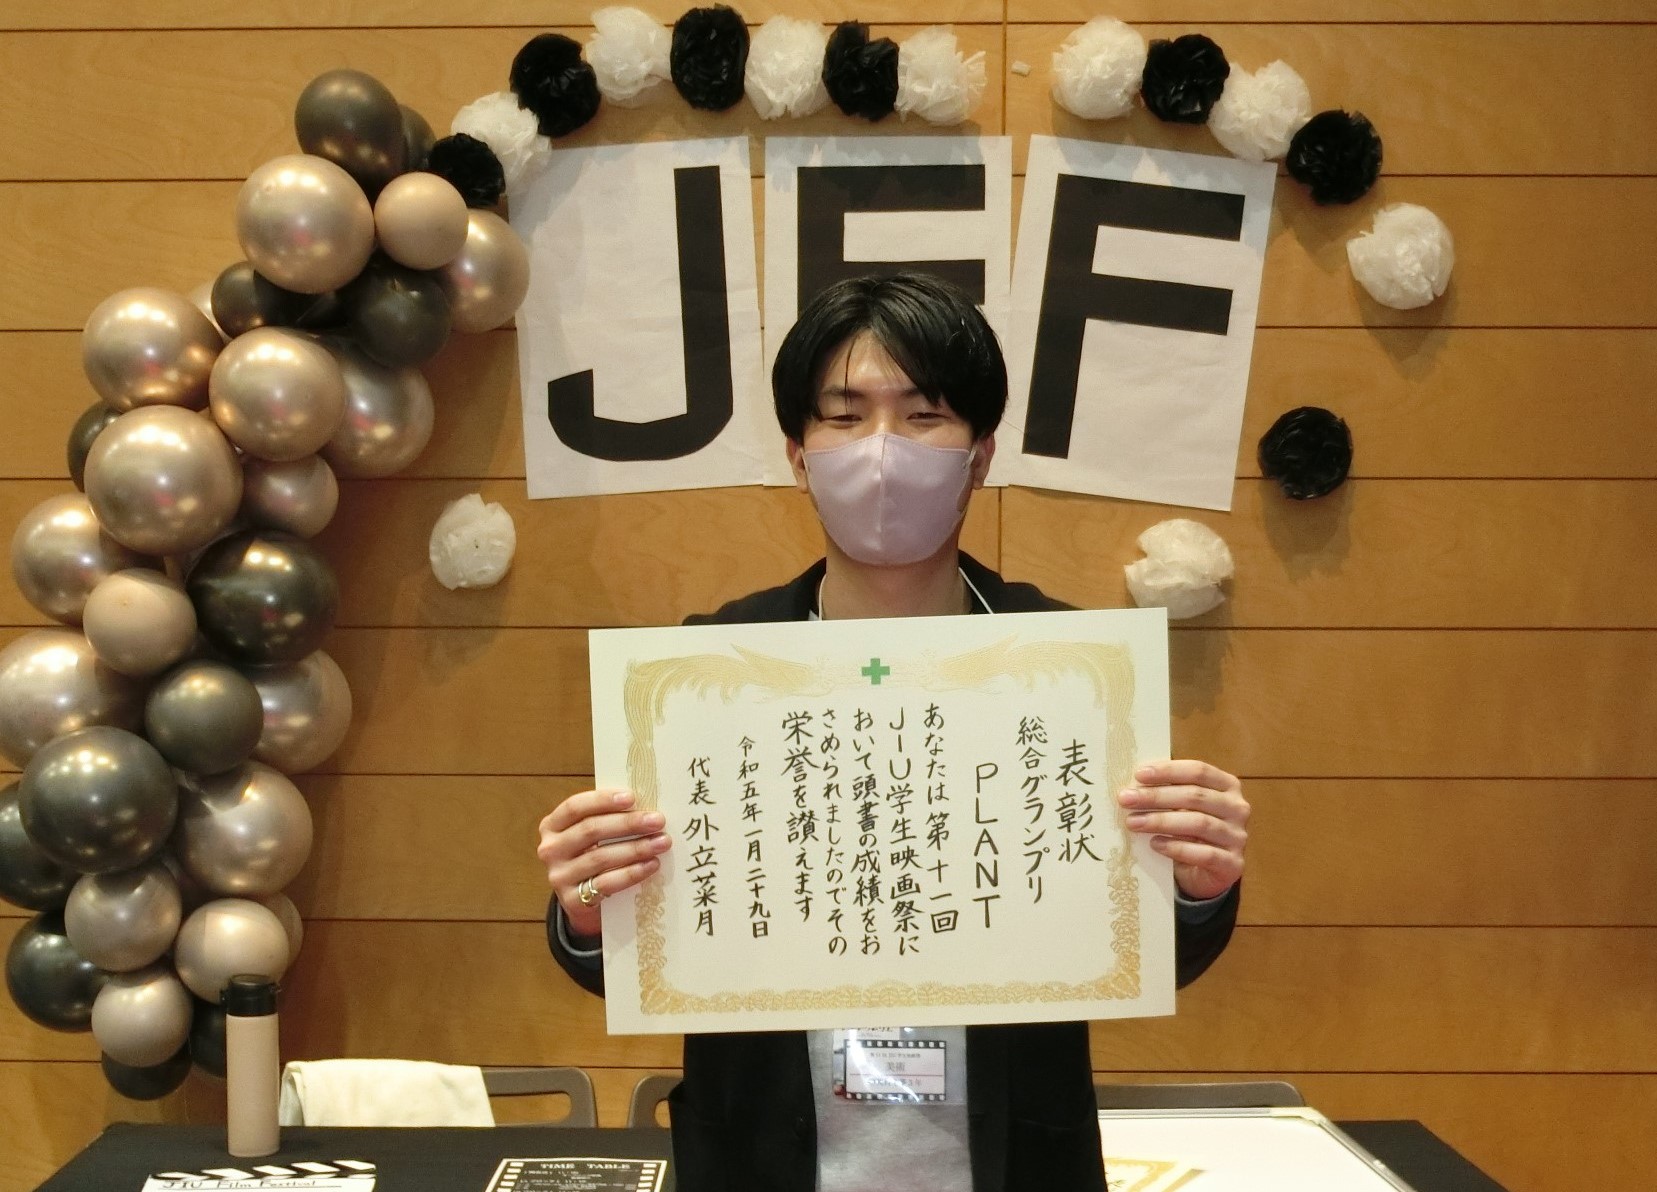 JFF
表彰状
総合グランプリ
PLANT
あなたは第十一回
JIU学生映画祭に
おいて頭書の成績をお
さめられましたのでその
栄誉を讃えます
令和五年一月二十九日
代表 外立菜月
美術
JIU Film Festival
TIME TABLE